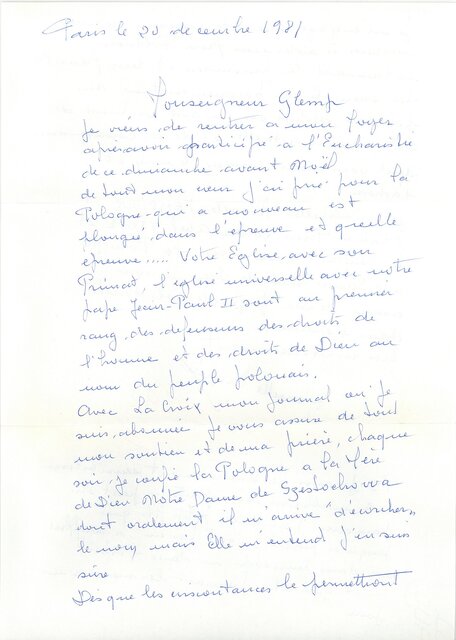 Paris le 20 decembre 1981
Monseigneur Glemp
Je viens de rentrer a mon foyer
après avoir participé a l'Eucharistie
de ce dimanche avant Noël
de tout mon cœur j'ai prié pour la
Pologne qui a nouveau est
plongée dans l'épreuve et quelle
épreuve..... Votre Eglise avec son
Primat, l'eglise universelle avec notre
pape Jean-Paul II sont au premier
rang des defenseurs des droits de
l'homme et des droits de Dieu au
nom du peuple polonais.
Avec La Croix mon journal ou je
suis abonnée je vous assure de tout
mon soutien et de ma prière, chaque
soir je confie la Pologne a la Mère
de Dieu Nôtre Dame de Szestochowa
dont oralement il m'arrive "d'écorcher"
le nom, mais Elle m'entend j'en suis
sûre
Des que les circonstances le permettront